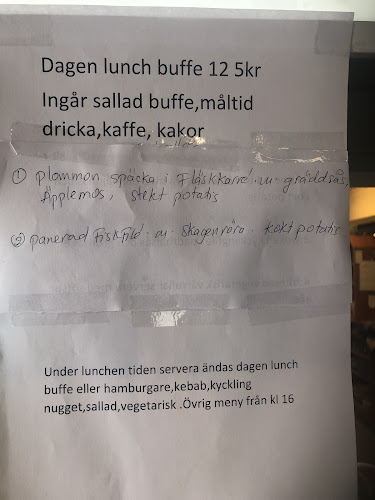 Dagen lunch buffe 12 5kr
Ingår sallad buffe,måltid
dricka,kaffe, kakor
① plommon späcka i Fläskkarré m gräddsås,
Äpplemos, stekt potatis
② panerad Fiskfilé m skagenröra kokt potatis
Under lunchen tiden servera ändas dagen lunch
buffe eller hamburgare,kebab,kyckling
nugget,sallad,vegetarisk .Övrig meny från kl 16